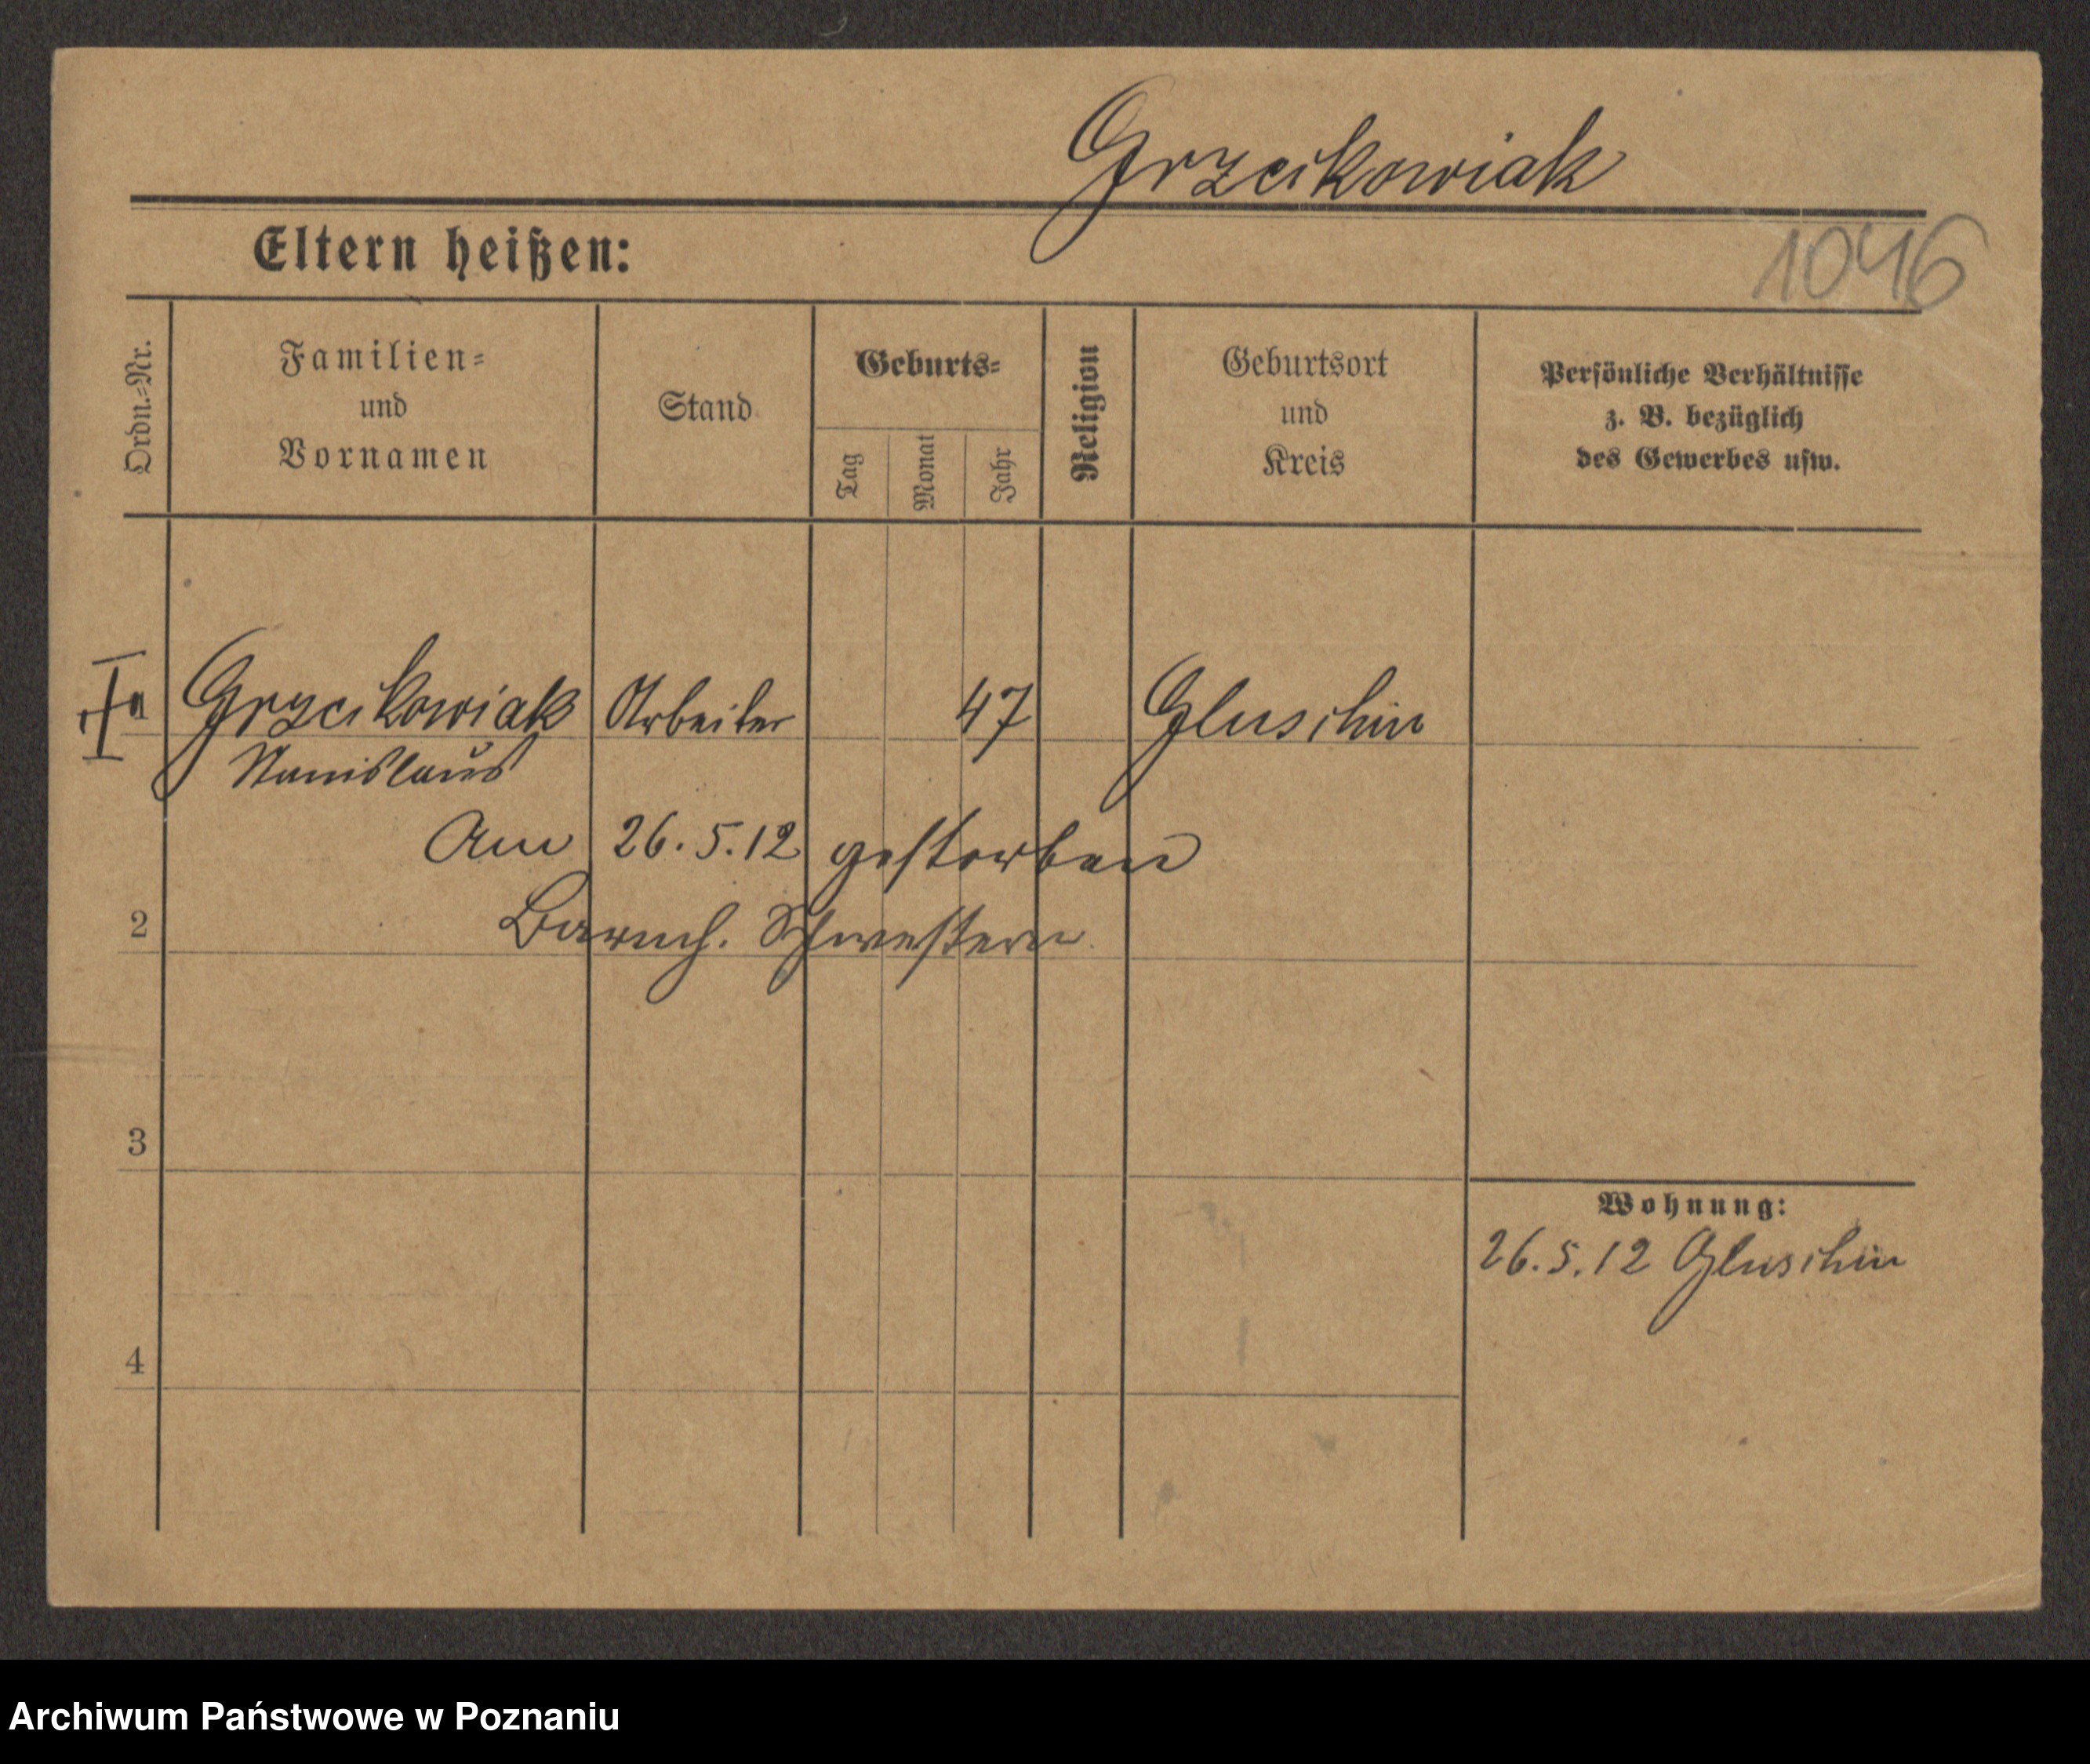 Grzcikowiak
Eltern heißen:
1046
Ordn.=Nr.
Familien=
und
Vornamen
Stand
Geburts=
Tag
Monat
Jahr
Religion
Geburtsort
und
Kreis
Persönliche Verhältnisse
z. B. bezüglich
des Gewerbes usw.
Grzcikowiak Arbeiter 47 Gluschin
Stanislaus
Am 26.5.12 gestorben
2
Barmh. Schwestern
3
Wohnung:
26.5.12 Gluschin
4
Archiwum Państwowe w Poznaniu